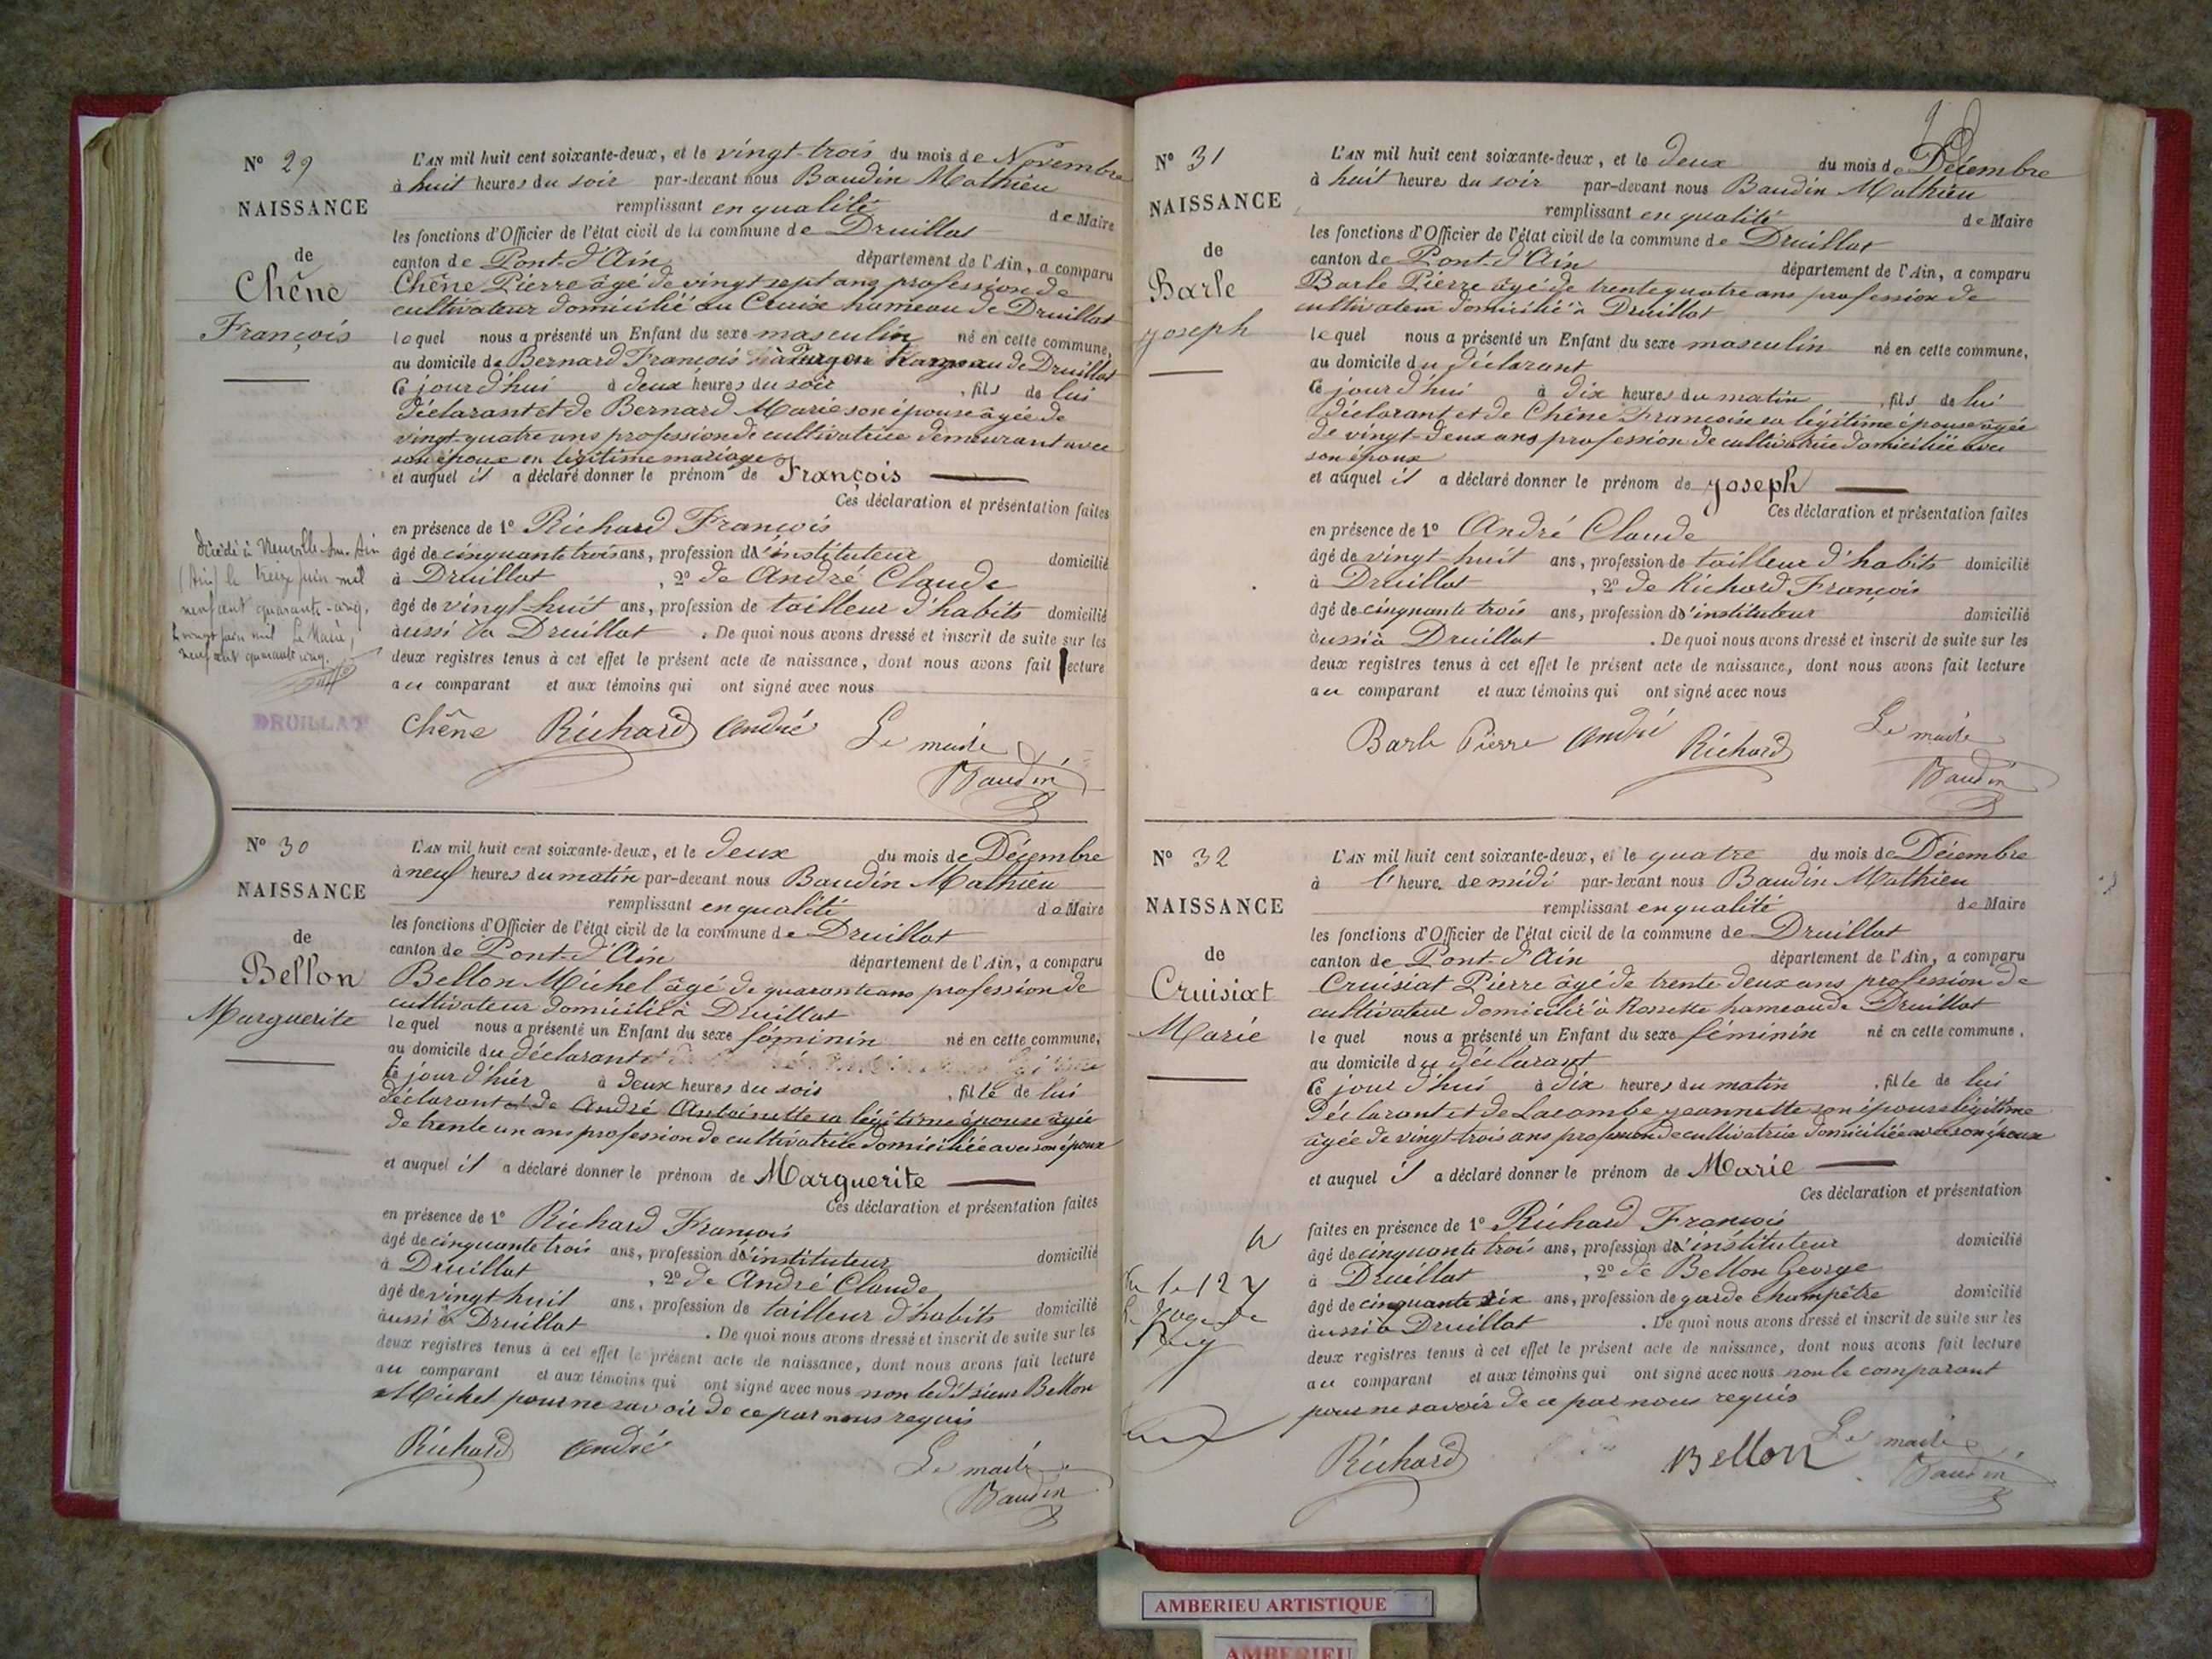 N° 29
NAISSANCE
de
Chêne
François
L'AN mil huit cent soixante-deux, et le vingt-trois du mois de Novembre
à huit heures du soir par-devant nous Baudin Mathieu
remplissant en qualité de Maire
les fonctions d'Officier de l'état civil de la commune de Druillat
canton de Pont-d'Ain département de l'Ain, a comparu
Chêne Pierre âgé de vingt sept ans profession de
cultivateur domicilié au Cruix hameau de Druillat
lequel nous a présenté un Enfant du sexe masculin né en cette commune,
au domicile de Bernard François à Turgon hameau de Druillat
Ce jour d'hui à deux heures du soir, fils de lui
déclarant et de Bernard Marie son épouse âgée de
vingt-quatre ans profession de cultivatrice demeurant avec
son époux en légitime mariage
et auquel il a déclaré donner le prénom de François
Ces déclaration et présentation faites
en présence de 1° Richard François
âgé de cinquante trois ans, profession d'instituteur domicilié
à Druillat, 2° de André Claude
âgé de vingt-huit ans, profession de tailleur d'habits domicilié
aussi à Druillat. De quoi nous avons dressé et inscrit de suite sur les
deux registres tenus à cet effet le présent acte de naissance, dont nous avons fait lecture
au comparant et aux témoins qui ont signé avec nous
Chêne Richard André Le maire
Baudin
Décédé à Neuville-sur-Ain
(Ain) le treize juin mil
neuf cent quarante-cinq.
Le vingt juin mil Le Maire,
neuf cent quarante cinq.
DRUILLAT
N° 30
NAISSANCE
de
Bellon
Marguerite
L'AN mil huit cent soixante-deux, et le deux du mois de Décembre
à neuf heures du matin par-devant nous Baudin Mathieu
remplissant en qualité de Maire
les fonctions d'Officier de l'état civil de la commune de Druillat
canton de Pont-d'Ain département de l'Ain, a comparu
Bellon Michel âgé de quarante ans profession de
cultivateur domicilié à Druillat
lequel nous a présenté un Enfant du sexe féminin né en cette commune,
au domicile du déclarant
Ce jour d'hier à deux heures du soir, fille de lui
déclarant et de André Antoinette sa légitime épouse âgée
de trente un ans profession de cultivatrice domiciliée avec son époux
et auquel il a déclaré donner le prénom de Marguerite
Ces déclaration et présentation faites
en présence de 1° Richard François
âgé de cinquante trois ans, profession d'instituteur domicilié
à Druillat, 2° de André Claude
âgé de vingt huit ans, profession de tailleur d'habits domicilié
aussi à Druillat. De quoi nous avons dressé et inscrit de suite sur les
deux registres tenus à cet effet le présent acte de naissance, dont nous avons fait lecture
au comparant et aux témoins qui ont signé avec nous non ledit sieur Bellon
Michel pour ne savoir de ce par nous requis
Richard André Le maire
Baudin
N° 31
NAISSANCE
de
Barle
Joseph
L'AN mil huit cent soixante-deux, et le deux du mois de Décembre
à huit heures du soir par-devant nous Baudin Mathieu
remplissant en qualité de Maire
les fonctions d'Officier de l'état civil de la commune de Druillat
canton de Pont-d'Ain département de l'Ain, a comparu
Barle Pierre âgé de trente quatre ans profession de
cultivateur domicilié à Druillat
lequel nous a présenté un Enfant du sexe masculin né en cette commune,
au domicile du déclarant
Ce jour d'hui à dix heures du matin, fils de lui
déclarant et de Chêne Françoise sa légitime épouse âgée
de vingt-deux ans profession de cultivatrice domiciliée avec
son époux
et auquel il a déclaré donner le prénom de Joseph
Ces déclaration et présentation faites
en présence de 1° André Claude
âgé de vingt-huit ans, profession de tailleur d'habits domicilié
à Druillat, 2° de Richard François
âgé de cinquante trois ans, profession d'instituteur domicilié
aussi à Druillat. De quoi nous avons dressé et inscrit de suite sur les
deux registres tenus à cet effet le présent acte de naissance, dont nous avons fait lecture
au comparant et aux témoins qui ont signé avec nous
Barle Pierre André Richard Le maire
Baudin
N° 32
NAISSANCE
de
Cruisiat
Marie
L'AN mil huit cent soixante-deux, et le quatre du mois de Décembre
à l'heure de midi par-devant nous Baudin Mathieu
remplissant en qualité de Maire
les fonctions d'Officier de l'état civil de la commune de Druillat
canton de Pont-d'Ain département de l'Ain, a comparu
Cruisiat Pierre âgé de trente deux ans profession de
cultivateur domicilié à Rossette hameau de Druillat
lequel nous a présenté un Enfant du sexe féminin né en cette commune,
au domicile du déclarant
Ce jour d'hui à dix heures du matin, fille de lui
déclarant et de Lacombe Jeannette son épouse légitime
âgée de vingt-trois ans profession de cultivatrice domiciliée avec son époux
et auquel il a déclaré donner le prénom de Marie
Ces déclaration et présentation
faites en présence de 1° Richard François
âgé de cinquante trois ans, profession d'instituteur domicilié
à Druillat, 2° de Bellon George
âgé de cinquante six ans, profession de garde champêtre domicilié
aussi à Druillat. De quoi nous avons dressé et inscrit de suite sur les
deux registres tenus à cet effet le présent acte de naissance, dont nous avons fait lecture
au comparant et aux témoins qui ont signé avec nous non le comparant
pour ne savoir de ce par nous requis
Richard Bellon Le maire
Baudin
AMBERIEU ARTISTIQUE
AMBERIEU